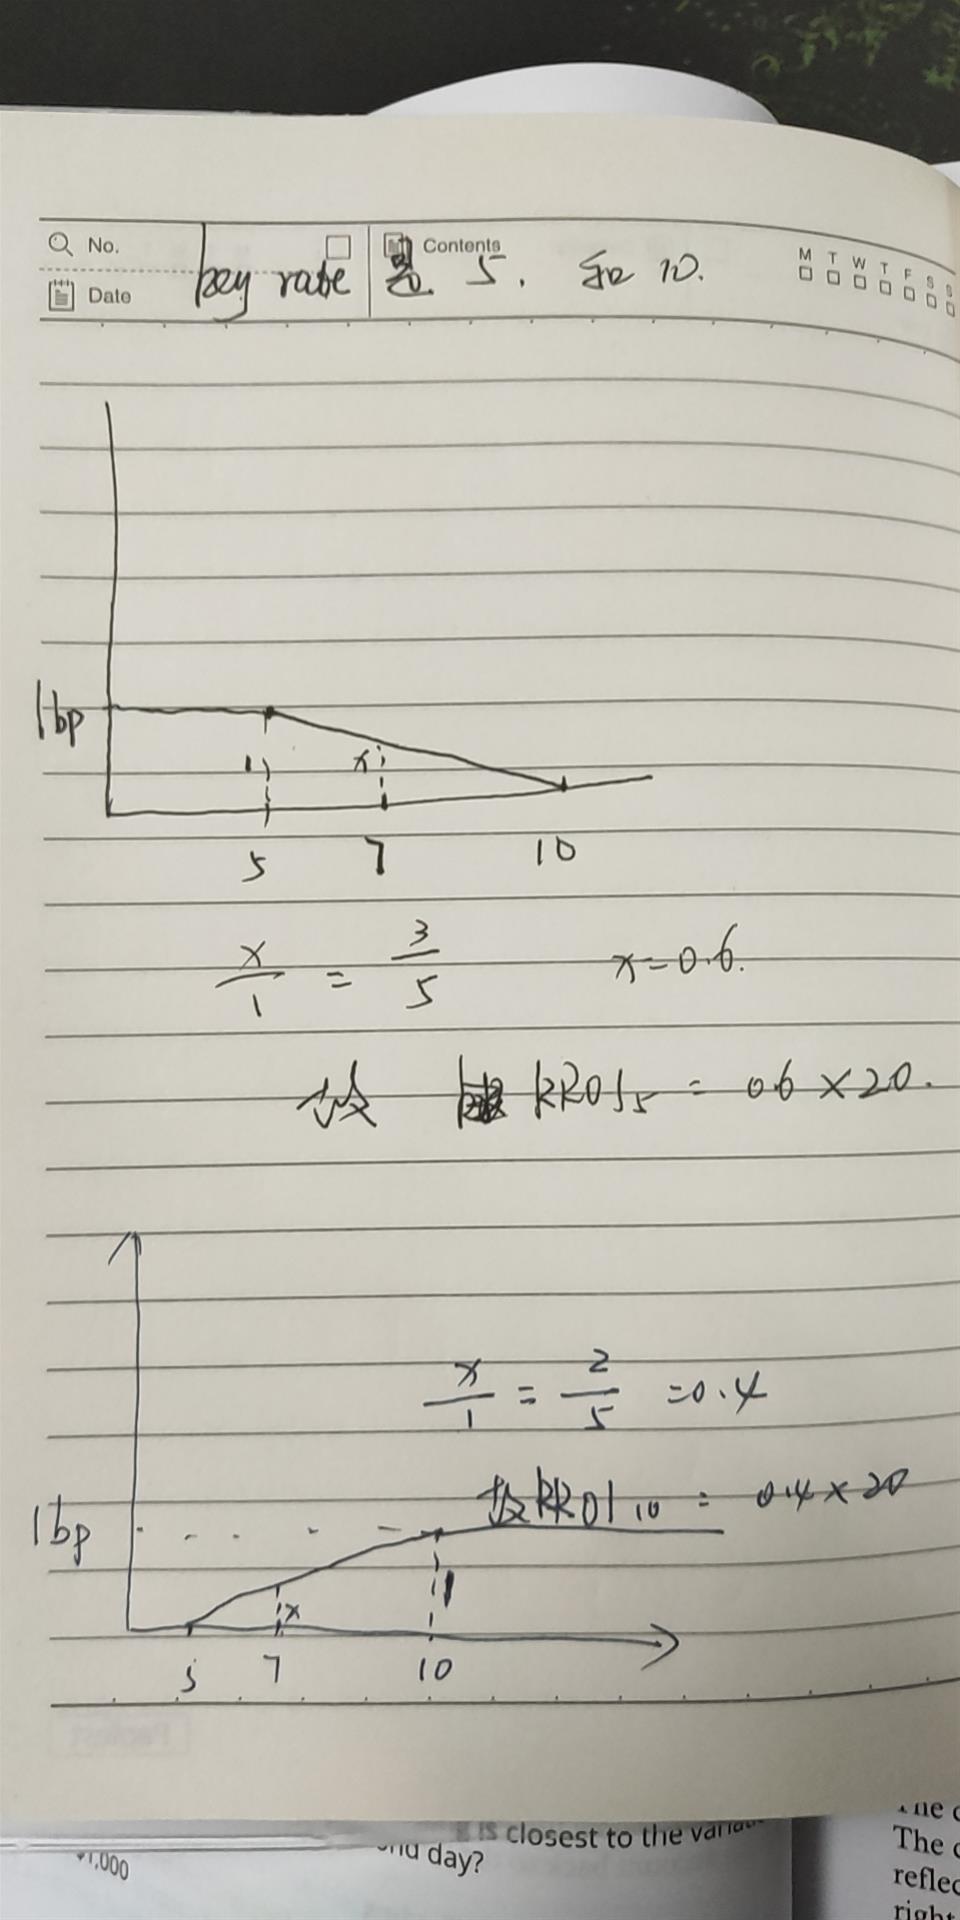 No. Contents M T W T F S S
Date key rate 是 5. 和 10.
1bp
1 x
5 7 10
x/1 = 3/5 x=0.6.
故 KR01₅ = 0.6 × 20.
x/1 = 2/5 =0.4
故KR01₁₀ = 0.4 × 20
1bp
x 1
5 7 10
is closest to the
day?
1,000
The
reflec
right